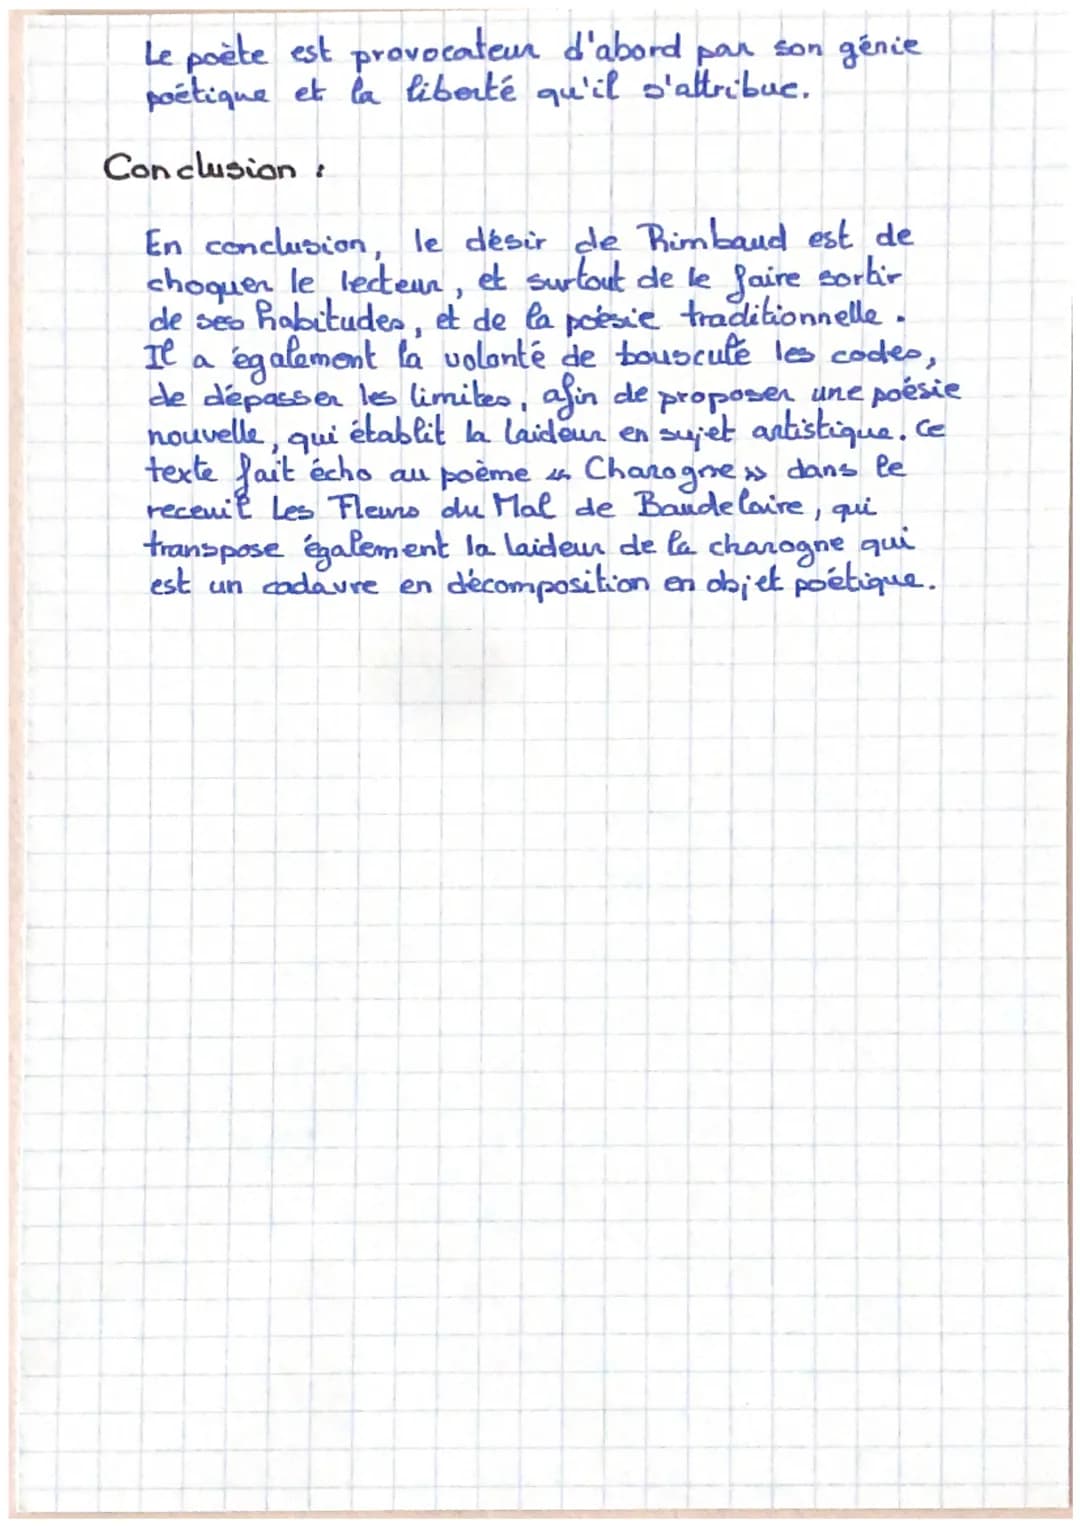 Le poète est provocateur d'abord par son génie
poétique et la liberté qu'il s'attribue.
Conclusion :
En conclusion, le désir de Rimbaud est de
choquer le lecteur, et surtout de le faire sortir
de ses habitudes, et de la poésie traditionnelle.
Il a également la volonté de bousculé les codes,
de dépasser les limites, afin de proposer une poésie
nouvelle, qui établit la laideur en sujet artistique. Ce
texte fait écho au poème « Charogne » dans le
recueil Les Fleurs du Mal de Baudelaire, qui
transpose également la laideur de la charogne qui
est un cadavre en décomposition en objet poétique.